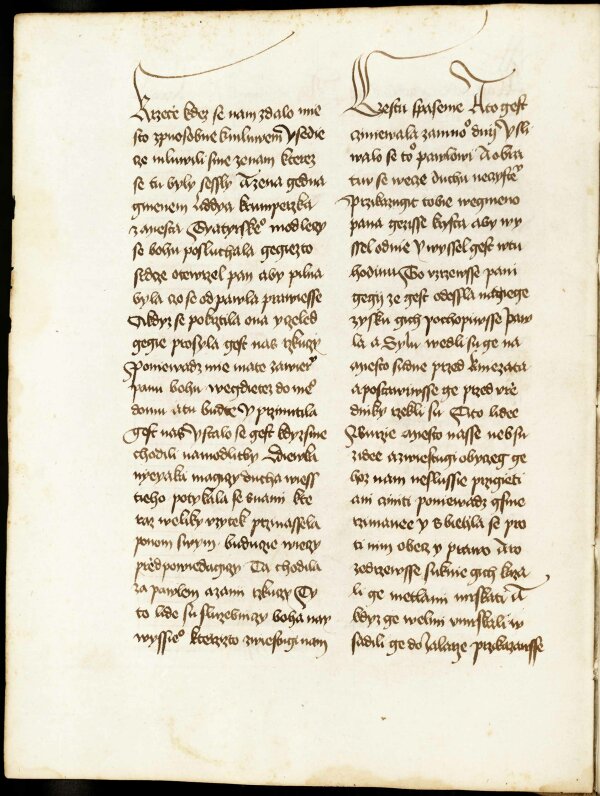 Rzece kdez se nam zdalo mie
sto zpuosobne k mluweni Usedie
ce mluwili sme zenam kterez
se tu byly sessly A zena gedna
gmenem Liddya krumperzka
z miesta Tyatyrske° modlecy
se bohu posluchala gegiezto
srdce otewrzel pan aby pilna
byla czo se od pawla prawiesse
A kdyz se pokrztila ona y czeled
gegie prosyla gest nas rzkuczy
Poniewadz mie mate za wier
panu bohu wegdietez do me°
domu a tu budte y przinutila
gest nas y stalo se gest kdyz sme
chodili na modlitby Diewka
nyeyaka magiczy ducha wiess
tieho potykala se s nami kte
raz weliky vzytek przinassela
panom swym buducze wieczy
przedpowiedagiczy Ta chodila
za pawlem a za mi rzkuczy Ty
to lide su sluzebniczy boha nay
wyssie° kterzyzto zwiestugi nam
Cestu spasenie A to gest
cziniewala za mno° dnij Usli
walo se to° pawlowi A obra
tiw se wece duchu neczyste°
Przikazugit tobie we gmeno
pana gezisse krysta aby wy
ssel od nie y wyssel gest w tu
hodinu To vzrzewsse pani
gegij ze gest odessla nadiege
zysku gich pochopiwsse paw
la a Sylu wedli su ge na
miesto sudne przed kniezata
a postawiwsse ge przed vrze
dniky rzekli su Tito lidee
Zburzie miesto nasse neb su
zidee a zwiestugi obyczeg ge
hoz nam neslussie przigieti
ani cziniti poniewadz gsme
rzimanee y zbiehla se pro
ti nim obecz y prawo A ro
zedrzewsse suknie gich kaza
li ge metlami mrskati A
kdyz ge welmi vmrskali w
sadili ge do zalarze przikazawsse